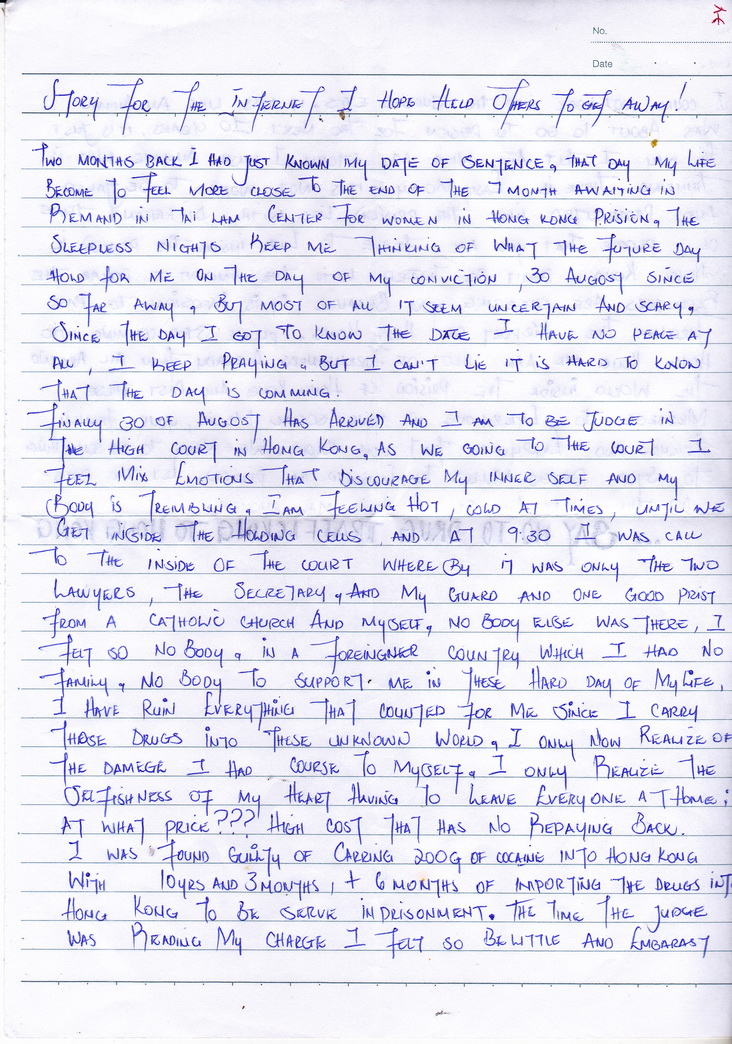 No.
Date
STORY FOR THE INTERNET. I HOPE HELD OTHERS TO GET AWAY!
TWO MONTHS BACK I HAD JUST KNOWN MY DATE OF SENTENCE, THAT DAY MY LIFE
BECOME TO FEEL MORE CLOSE TO THE END OF THE 7 MONTH AWAITING IN
REMAND IN TAI LAM CENTER FOR WOMEN IN HONG KONG PRISIEN, THE
SLEEPLESS NIGHTS KEEP ME THINKING OF WHAT THE FUTURE DAY
HOLD FOR ME ON THE DAY OF MY CONVICTION, 30 AUGOST SINCE
SO FAR AWAY, BUT MOST OF ALL IT SEEM UNCERTAIN AND SCARY,
SINCE THE DAY I GOT TO KNOW THE DATE I HAVE NO PEACE AT
ALL, I KEEP PRAYING, BUT I CAN'T LIE IT IS HARD TO KNOW
THAT THE DAY IS COMMING.
FINALLY 30 OF AUGOST HAS ARRIVED AND I AM TO BE JUDGE IN
THE HIGH COURT IN HONG KONG, AS WE GOING TO THE COURT I
FEEL MIX EMOTIONS THAT DISCOURAGE MY INNER SELF AND MY
BODY IS TREMBLING, I AM FEELING HOT, COLD AT TIMES, UNTIL WE
GET INSIDE THE HOLDING CELLS, AND AT 9:30 I WAS CALL
TO THE INSIDE OF THE COURT WHERE BY IT WAS ONLY THE TWO
LAWYERS, THE SECRETARY, AND MY GUARD AND ONE GOOD PRIST
FROM A CATHOLIC CHURCH AND MYSELF, NO BODY ELSE WAS THERE, I
FELT SO NO BODY, IN A FOREINGNER COUNTRY WHICH I HAD NO
FAMILY, NO BODY TO SUPPORT ME IN THESE HARD DAY OF MY LIFE,
I HAVE RUIN EVERYTHING THAT COUNTED FOR ME SINCE I CARRY
THOSE DRUGS INTO THESE UNKNOWN WORLD, I ONLY NOW REALIZE OF
THE DAMEGE I HAD COURSE TO MYSELF, I ONLY REALIZE THE
SELFISHNESS OF MY HEART HAVING TO LEAVE EVERYONE AT HOME;
AT WHAT PRICE??? HIGH COST THAT HAS NO REPAYING BACK.
I WAS FOUND GUILTY OF CARRING 200G OF COCAINE INTO HONG KONG
WITH 10YRS AND 3 MONTHS, + 6 MONTHS OF IMPORTING THE DRUGS INTO
HONG KONG TO BE SERVE IMPRISONMENT. THE TIME THE JUDGE
WAS READING MY CHARGE I FELT SO BE LITTLE AND EMBARAST